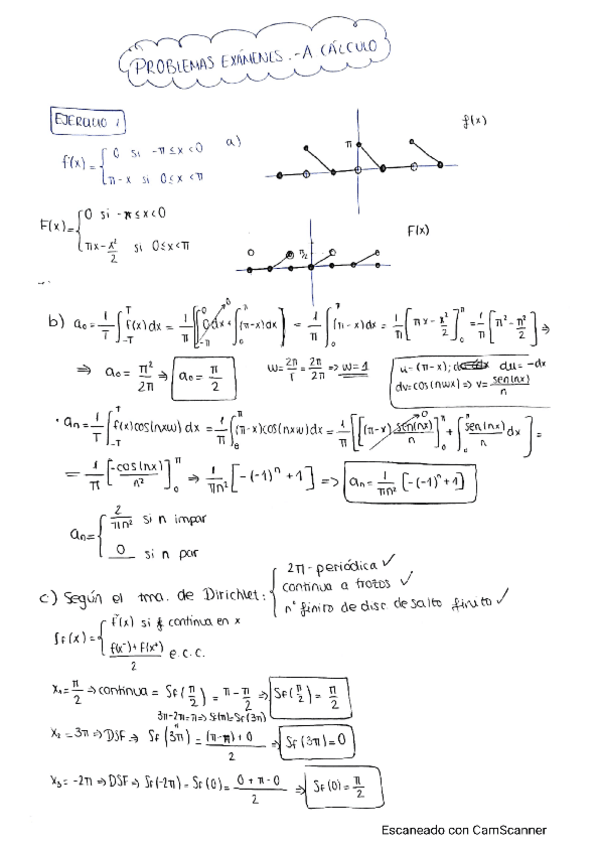 PROBLEMAS EXÁMENES.-A CÁLCULO
EJERCICIO 1
f(x)= { 0 si -π≤x<0
π-x si 0≤x<π
a)
π
f(x)
F(x)= { 0 si -π≤x<0
πx-x²/2 si 0≤x<π
π/2
F(x)
b) a₀= 1/T ∫_{-T}^{T} f(x)dx = 1/π [∫_{-π}^{0} 0dx + ∫_{0}^{π} (π-x)dx] = 1/π ∫_{0}^{π} (π-x)dx = 1/π [πx - x²/2]_{0}^{π} = 1/π [π² - π²/2] ⇒
⇒ a₀= π²/2π ⇒ a₀= π/2
w= 2π/T = 2π/2π ⇒ w=1
u=(π-x); du=-dx
dv=cos(nwx) ⇒ v= sen(nx)/n
· an= 1/T ∫_{-T}^{T} f(x)cos(nxw) dx = 1/π ∫_{0}^{π} (π-x)cos(nxw)dx = 1/π [[(π-x) sen(nx)/n]_{0}^{π} + ∫_{0}^{π} sen(nx)/n dx] =
= 1/π [-cos(nx)/n²]_{0}^{π} ⇒ 1/πn² [-(-1)ⁿ+1] => an= 1/πn² [-(-1)ⁿ+1]
an= { 2/πn² si n impar
0 si n par
c) Según el tma. de Dirichlet: { 2π-periódica ✓
continua a trozos ✓
nº finito de disc. de salto finito ✓
Sf(x)= { f(x) si f continua en x
f(x⁻)+f(x⁺)/2 e.c.c.
x₁= π/2 ⇒ continua = Sf(π/2) = π - π/2 ⇒ Sf(π/2) = π/2
3π-2π=π ⇒ Sf(π)=Sf(3π)
x₂=3π ⇒ DSF ⇒ Sf(3π) = (π-π)+0/2 ⇒ Sf(3π)=0
x₃=-2π ⇒ DSF ⇒ Sf(-2π)=Sf(0)= 0+π-0/2 ⇒ Sf(0)= π/2
Escaneado con CamScanner